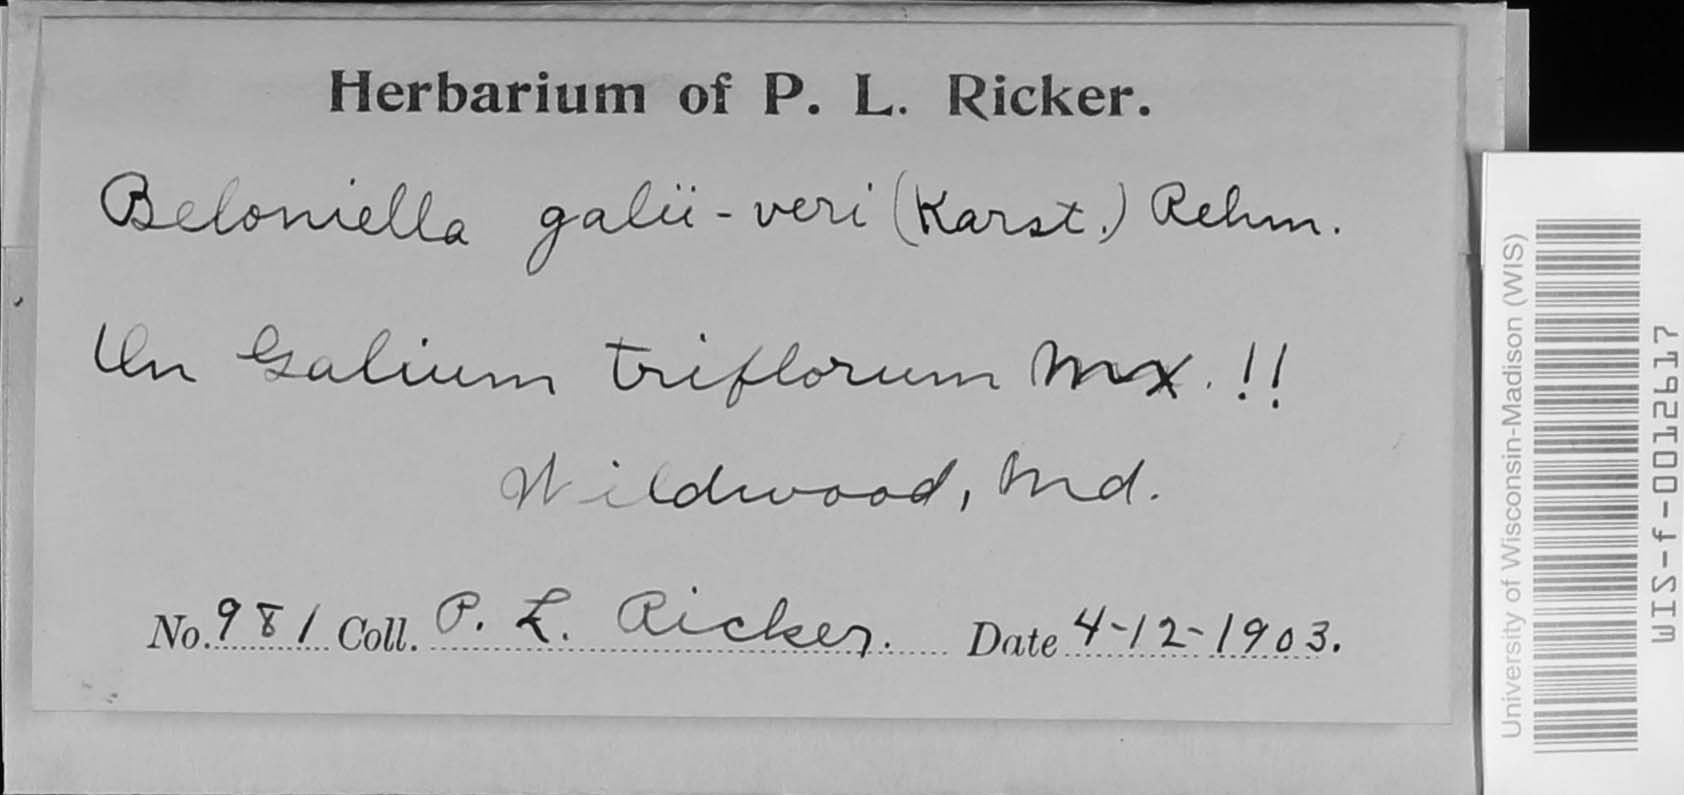 Herbarium of P. L. Ricker.
Beloniella galii-veri (Karst.) Rehm.
On Galium triflorum Mx. !!
Wildwood, Md.
No. 981 Coll. P. L. Ricker. Date 4-12-1903.
University of Wisconsin-Madison (WIS)
WIS-f-0012617